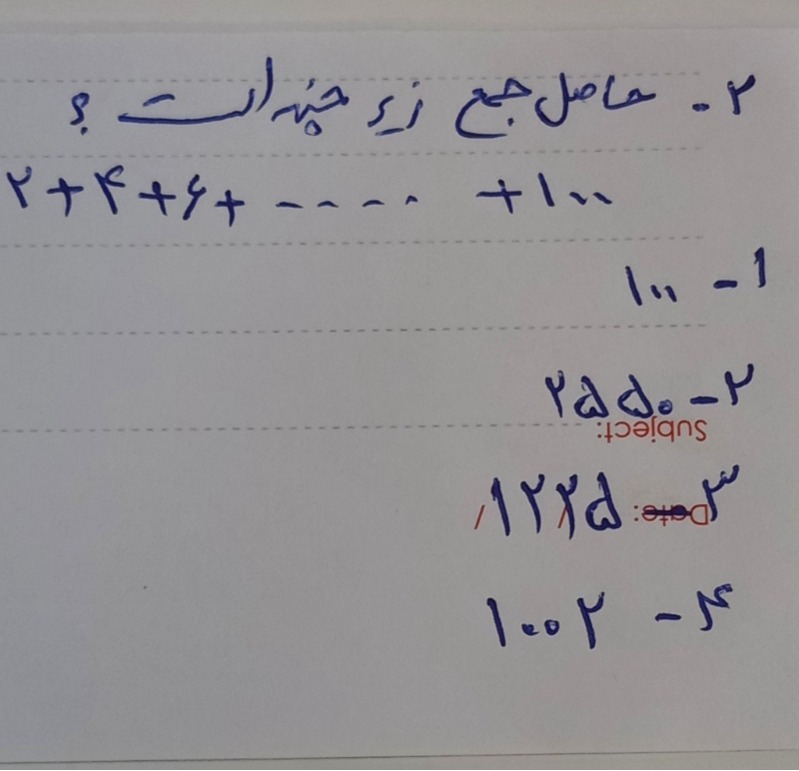 ۲- حاصل جمع زیر چند است ؟
۲+۴+۶+ ----۰ +۱۰۰
۱- ۱۰۰
۲- ۲۵۵۰
Subject:
۳- ۱۲۲۵
Date: / /
۴- ۱۰۰۲